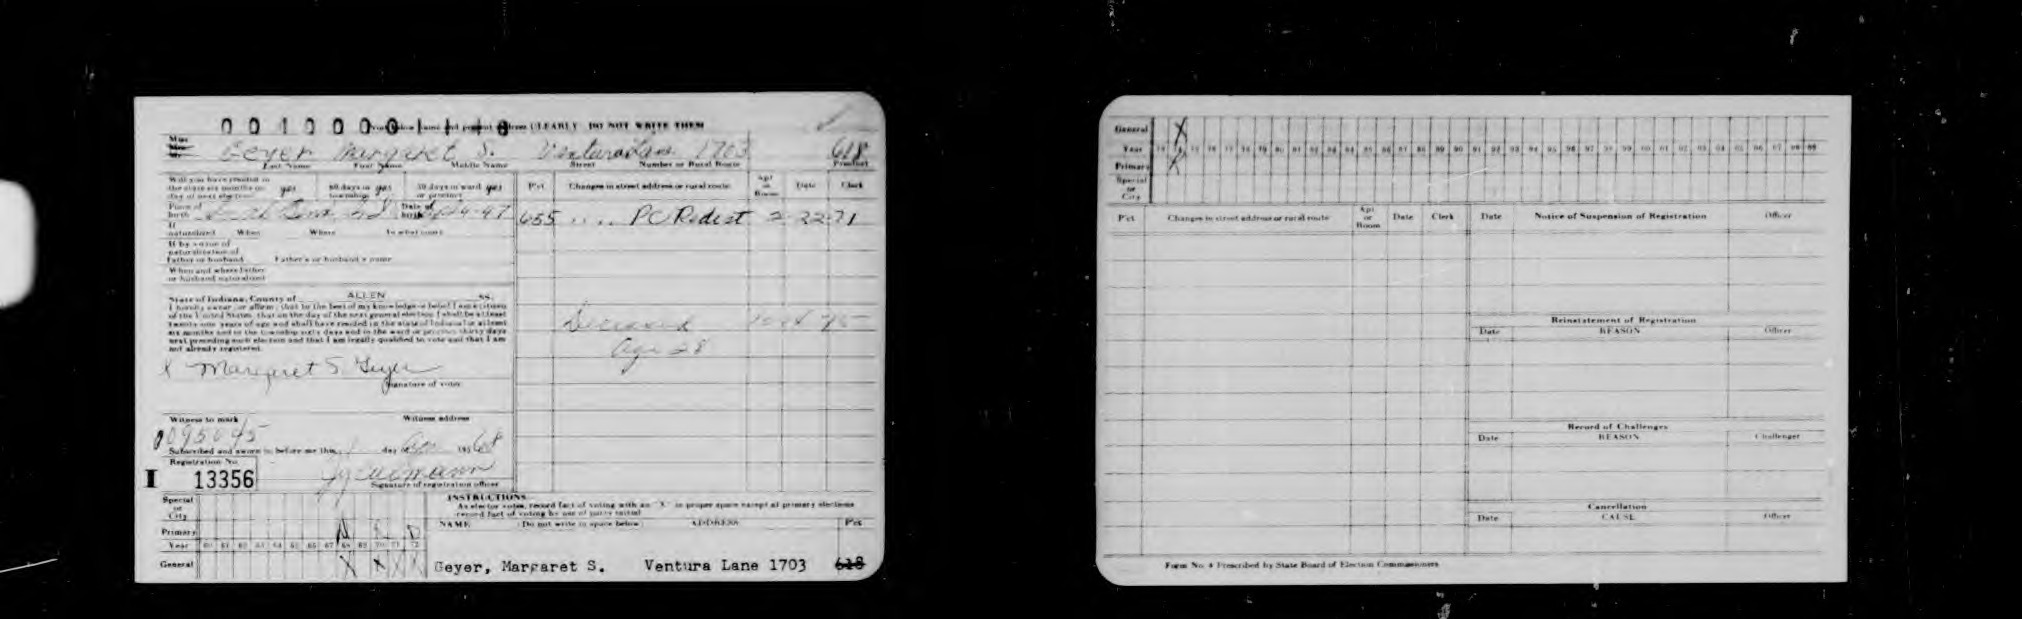 CLEARLY DO NOT WRITE THEM
Geyer Margaret S. Ventura Lane 1703 618
Last Name First Name Middle Name Street Number or Rural Route Precinct
Will you have resided in
the state six months on yes 60 days in yes 30 days in ward yes
day of next election township or precinct
Pct Changes in street address or rural route Apt or Room Date Clerk
Place of birth Date of birth
655 " " PC Redist 2-22-71
If naturalized When Where In what court
If by virtue of
naturalization of
Father or husband Father's or husband's name
When and where father
or husband naturalized
State of Indiana, County of ALLEN SS.
I hereby swear or affirm, that to the best of my knowledge or belief I am a citizen
of the United States, that on the day of the next general election I shall be at least
twenty-one years of age and shall have resided in the state of Indiana for at least
six months and in the township sixty days and in the ward or precinct thirty days
next preceding such election and that I am legally qualified to vote and that I am
not already registered.
Deceased
X Margaret S. Geyer
Signature of voter
Witness to mark Witness address
095045
Subscribed and sworn to before me this day of 1968
Registration No.
I 13356
Signature of registration officer
Special or City
Primary
Year 60 61 62 63 64 65 66 67 68 69 70 71 72
General X X X X
INSTRUCTIONS
As elector votes, record fact of voting with an "X" in proper space except at primary elections
record fact of voting by use of party initial
NAME (Do not write in space below) ADDRESS Pct
Geyer, Margaret S. Ventura Lane 1703 618
General X
Year 73 74 75 76 77 78 79 80 81 82 83 84 85 86 87 88 89 90 91 92 93 94 95 96 97 98 99
Primary
Special or City
Pct Changes in street address or rural route Apt or Room Date Clerk Date Notice of Suspension of Registration Officer
Reinstatement of Registration
Date REASON Officer
Record of Challenges
Date REASON Challenger
Cancellation
Date CAUSE Officer
Form No. 4 Prescribed by State Board of Election Commissioners